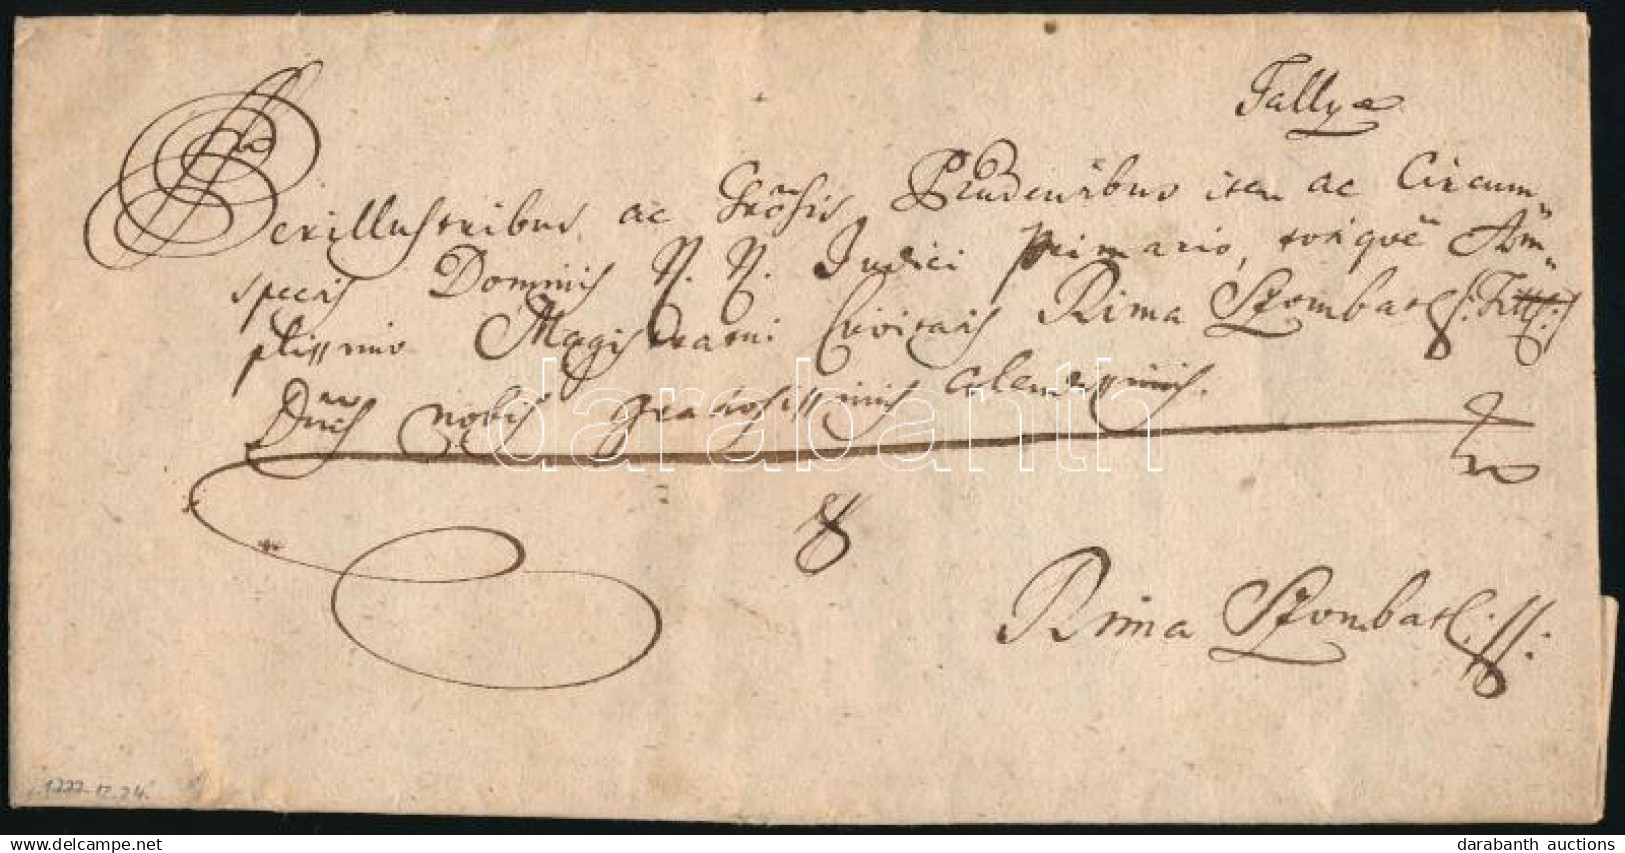 Tallya
Perillustribus ac Grōsis, Prudentibus item ac Circum„
specis Dominis N. N. Judici Primario, totiquē Am„
plissimo Magistratui Civitatis Rima Szombath /: Titt :/
Dnīs nobis gratiosissimis colendissimis.
Rima Szombath
1777.12.24.
darabanth
delcampe.net
darabanth auctions